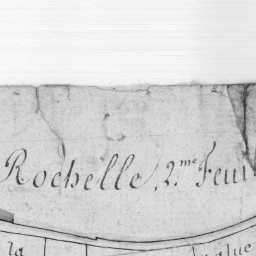 Rochelle, 2.me Feui
la